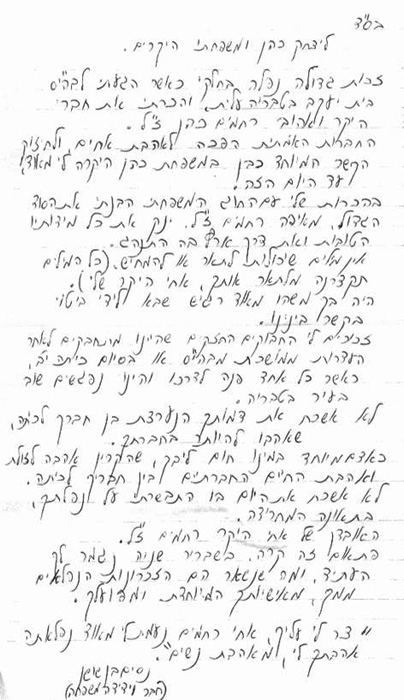 בס"ד
ליצחק כהן ומשפחתו היקרים.
זכות גדולה נפלה בחלקי כאשר הגעתי לבי"ס
בית יעקב בטבריה עלית, והכרתי את חברי
היקר ואהובי רחמים כהן ז"ל.
החברות האמתית הפכה לאהבת אחים, ולחיזוק
הקשר המיוחד כבן במשפחת כהן היקרה לי מאוד,
ועד היום הזה.
בהכרות שלי עם החוג המשפחתי הבנתי את הסוד
הגדול, מאיפה רחמים ז"ל, ינק את כל מידותיו
הטובות ואת דרך ארץ בה התנהג.
אין מלים שיכולות לתאר או להמחיש, (כל המילים
תקצרנה מלתאר אותך, אחי היקר שלי).
היה בך משהו מאוד רגיש שבא לידי ביטוי
בקשר בינינו.
זכורים לי החבוקים החזקים שהיינו מתחבקים לאחר
העדרות ממושכת מבה"ס או בסיום כיתה י"ב,
כאשר כל אחד פנה לדרכו והיינו נפגשים שוב
בעיר בטבריה.
לא אשכח את דמותך הנערצת בן חבריך לכיתה,
שאהבו להיות בחברתך.
כאדם מיוחד במינו חום ליבך, שהקרין אהבה לזולת
ואהבת החיים החברתיים לבין חבריך לכיתה.
לא אשכח את היום בו התבשרתי על נפילתך,
בתאונה המחרידה.
האובדן של אחי היקר רחמים ז"ל.
פתאום זה קרה, בשבריר שניה נגמר לך
העתיד, ומה שנשאר הם הזכרונות הנפלאים
ממך, מאישיותך המיוחדת ומפועלך.
"צר לי עליך, אחי רחמים נעמת לי מאוד נפלאתה
אהבתך לי, מאהבת נשים".
נסים בן שושן
(חבר וידיד המשפחה)